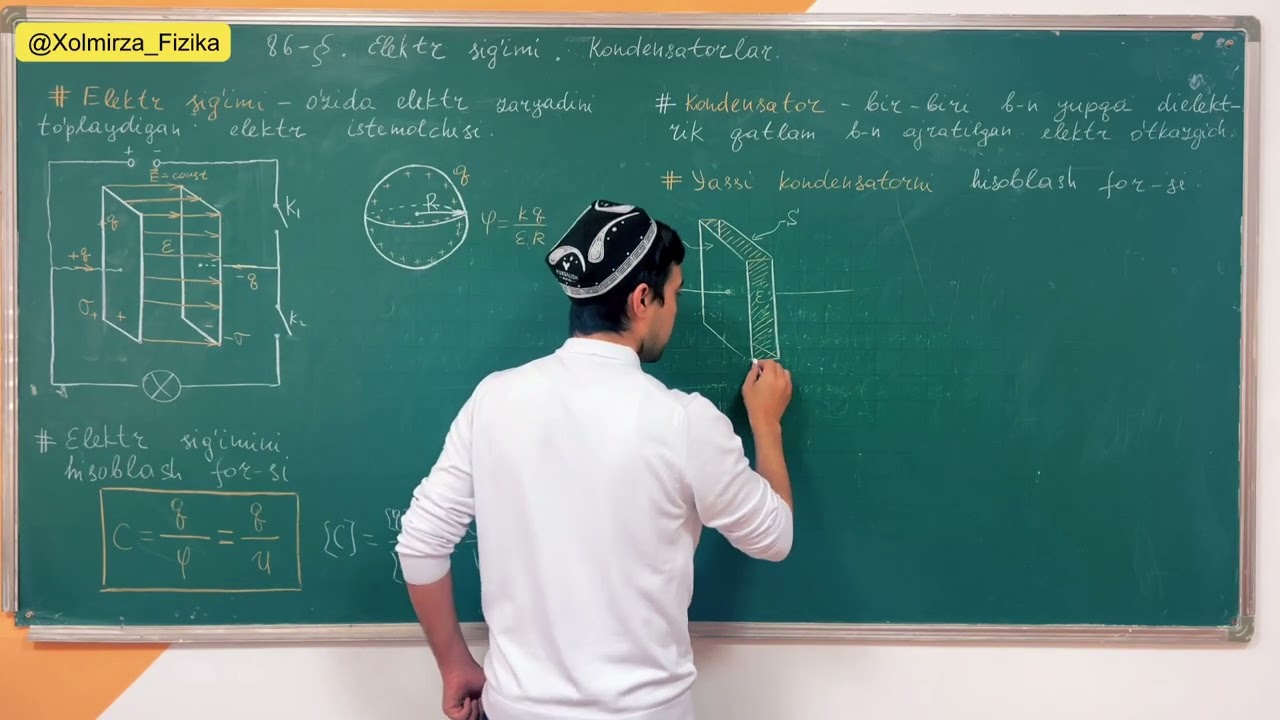 @Xolmirza_Fizika
86-§. Elektr sig'imi. Kondensatorlar.
# Elektr sig'imi - o'zida elektr zaryadini
to'playdigan elektr istemolchisi.
+ -
E⃗ = const
+q
ε
K₁
+q
-q
σ₊
+
-
-σ
K₂
q
R
φ = kq/εR
# Elektr sig'imini
hisoblash for-si
C = q/φ = q/u
[C] =
# Kondensator - bir-biri b-n yupqa dielekt-
rik qatlam b-n ajratilgan elektr o'tkazgich.
# Yassi kondensatorni hisoblash for-si
S
ε